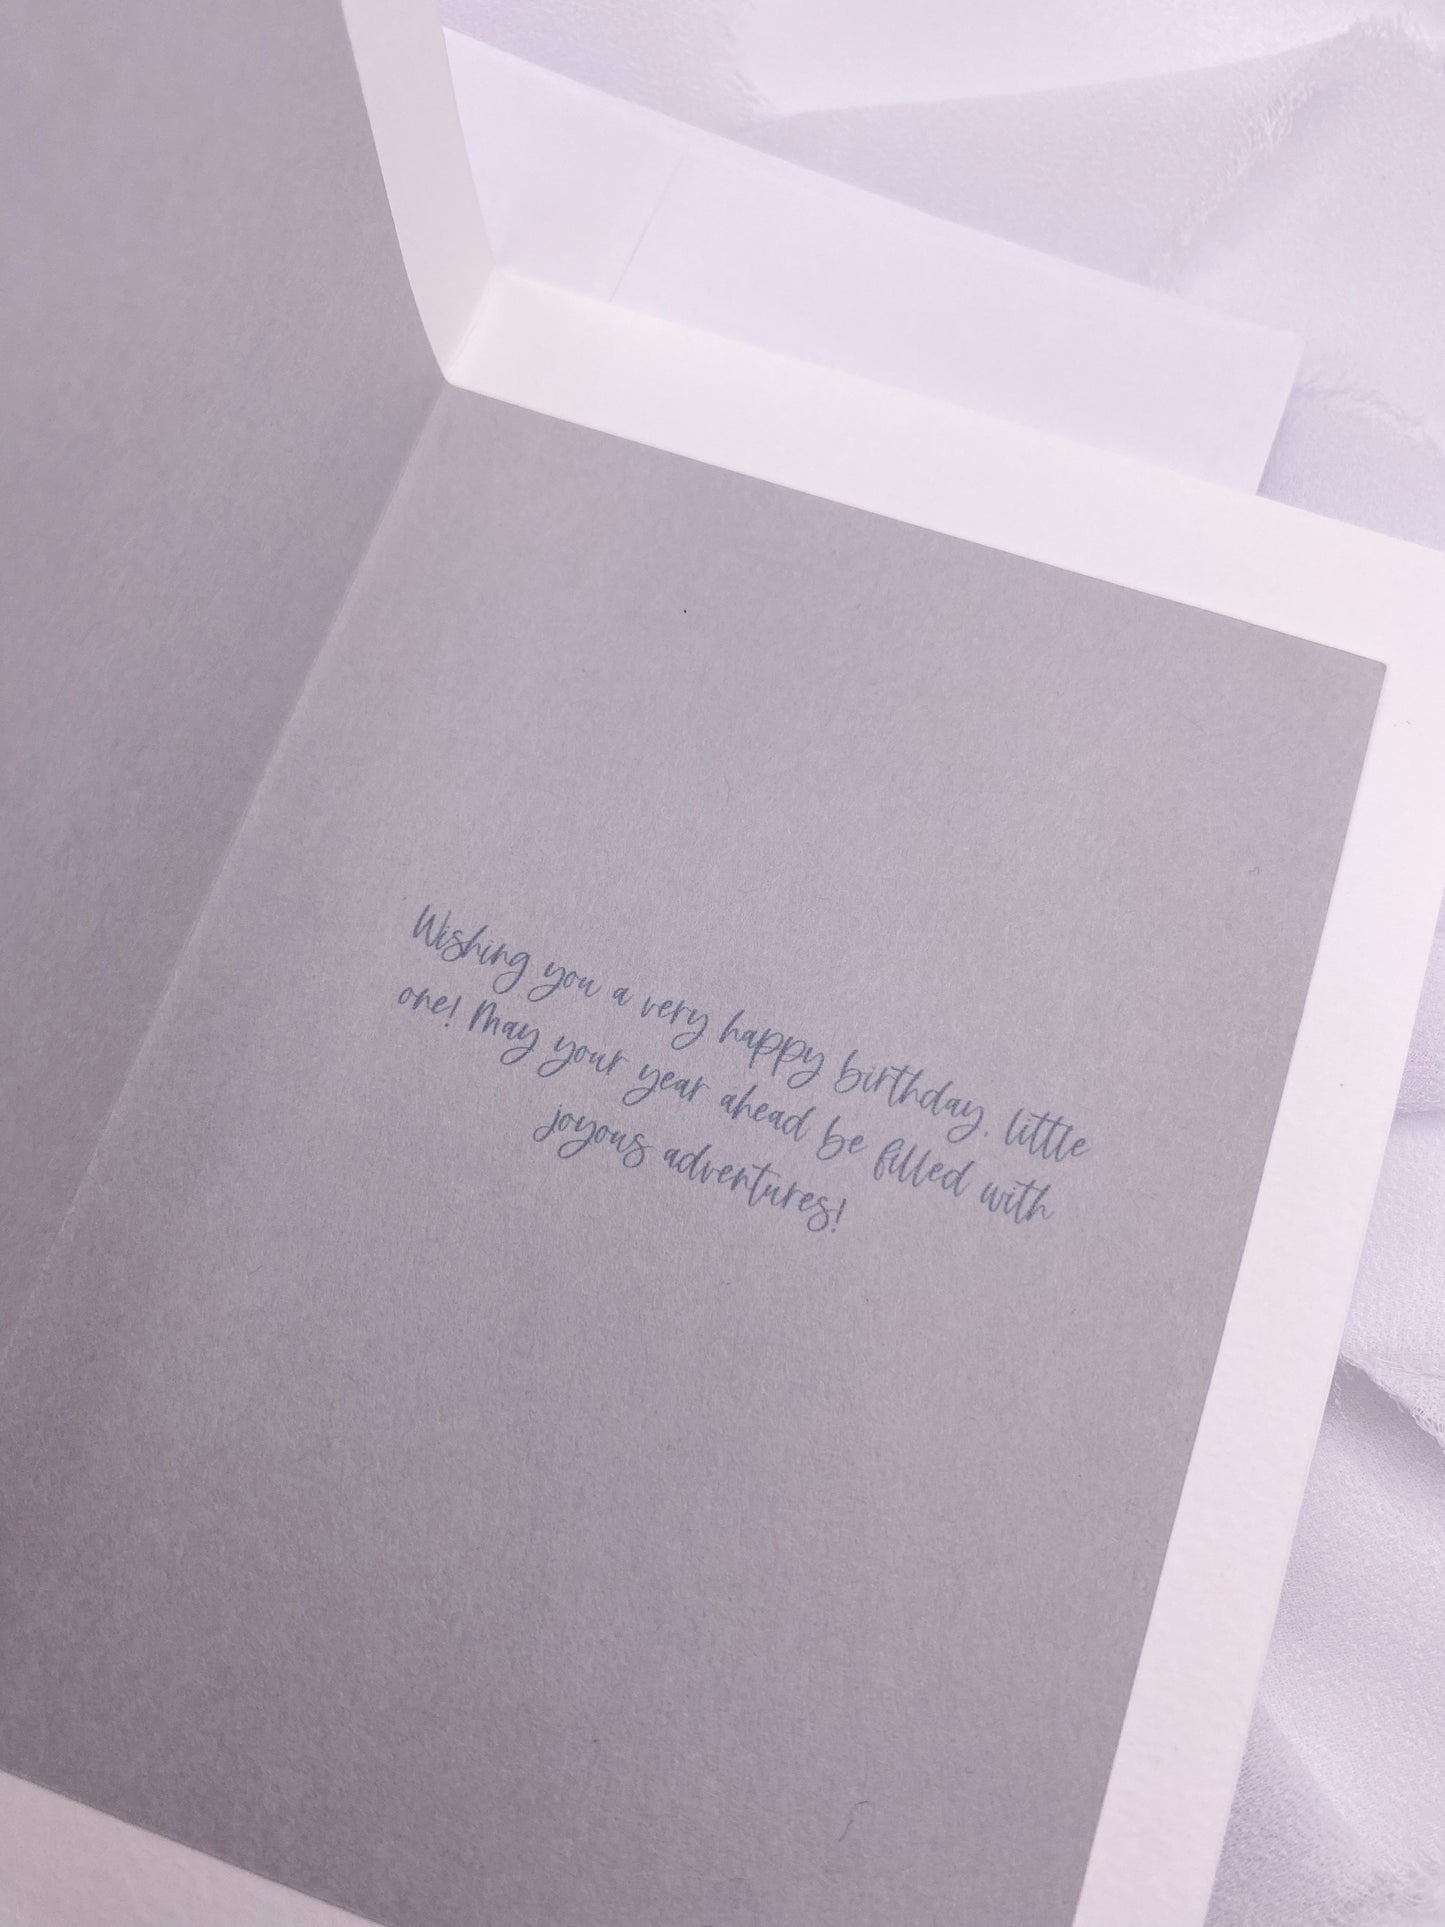 Wishing you a very happy birthday, little
one! May your year ahead be filled with
joyous adventures!